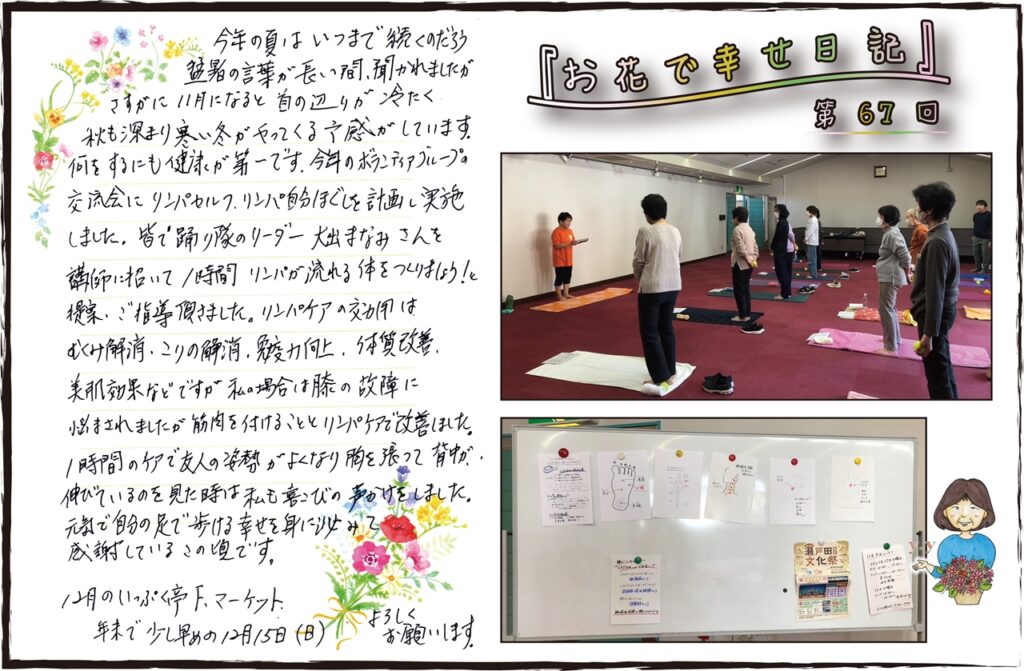 今年の夏は いつまで続くのだろう
猛暑の言葉が長い間、聞かれましたが
さすがに 11月になると 首の辺りが 冷たく
秋も深まり寒い冬がやってくる予感がしています。
何をするにも健康が第一です。今年のボランティアグループの
交流会に リンパセルフ、リンパ自分ほぐしを計画し実施
しました。皆で踊り隊のリーダー 大出まなみ さんを
講師に招いて 1時間 リンパが流れる体をつくりましょう!と
提案・ご指導頂きました。リンパケアの効用は
むくみ解消・こりの解消・免疫力向上・体質改善・
美肌効果などですが 私の場合は膝の故障に
悩まされましたが筋肉を付けることとリンパケアで改善しました。
1時間のケアで友人の姿勢がよくなり胸を張って背中が
伸びているのを見た時は私も喜こびの声かけをしました。
元気で自分の足で歩ける幸せを身に沁みて
感謝している この頃です。
12月のいっぷく亭 F.マーケット
年末で少し早めの12月15日(日)
よろしく
お願いします。
『お花で幸せ日記』
第67回
瀬戸田
文化祭